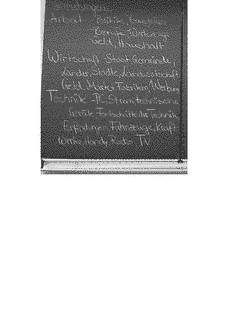 Arbeit Politik,
Berufe, Werkzeuge
Geld, Haushalt
Wirtschaft - Staat, Gemeinde,
Länder, Städte, Landwirtschaft
Geld, Märkte, Fabriken, Werbung
Technik - PC, Strom, technische
Geräte, Fortschritte der Technik,
Erfindungen, Fahrzeuge, Kraft
werke, Handy, Radio, TV